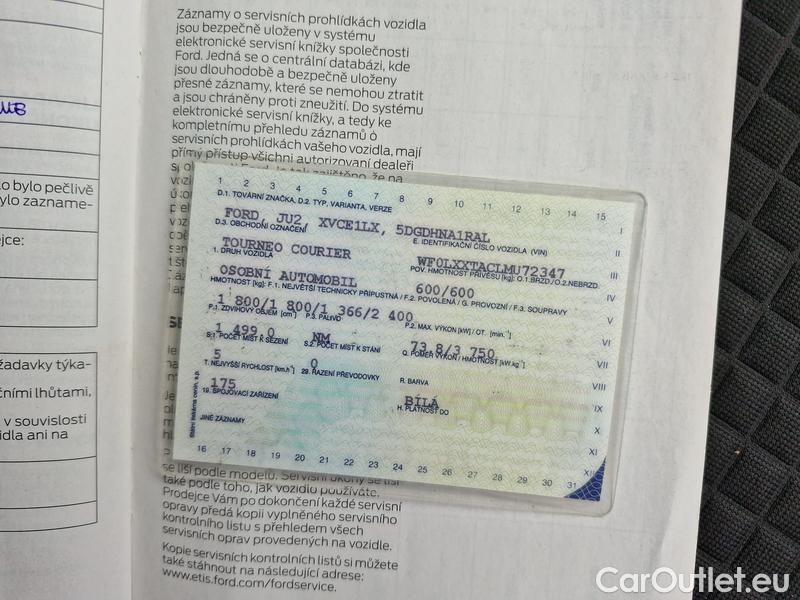 Záznamy o servisních prohlídkách vozidla
jsou bezpečně uloženy v systému
elektronické servisní knížky společnosti
Ford. Jedná se o centrální databázi, kde
jsou dlouhodobě a bezpečně uloženy
přesné záznamy, které se nemohou ztratit
a jsou chráněny proti zneužití. Do systému
elektronické servisní knížky, a tedy ke
kompletnímu přehledu záznamů o
servisních prohlídkách vašeho vozidla, mají
přímý přístup všichni autorizovaní dealeři
lo bylo pečlivě
ylo zazname-
jce:
žadavky týka-
čními lhůtami,
v souvislosti
idla ani na
1 2 3 4 5 6 7 8 9 10 11 12 13 14 15
D.1. TOVÁRNÍ ZNAČKA, D.2. TYP, VARIANTA, VERZE
I
FORD, JU2, XVCE1LX, 5DGDHNA1RAL
D.3. OBCHODNÍ OZNAČENÍ E. IDENTIFIKAČNÍ ČÍSLO VOZIDLA (VIN)
II
TOURNEO COURIER WF0LXXTACLMU72347
III
1. DRUH VOZIDLA POV. HMOTNOST PŘÍVĚSU [kg]: O.1.BRZD./O.2.NEBRZD.
OSOBNÍ AUTOMOBIL 600/600
IV
HMOTNOST [kg]: F.1. NEJVĚTŠÍ TECHNICKY PŘÍPUSTNÁ / F.2. POVOLENÁ / G. PROVOZNÍ / F.3. SOUPRAVY
1 800/1 800/1 366/2 400
V
P.1. ZDVIHOVÝ OBJEM [cm³] P.3. PALIVO P.2. MAX. VÝKON [kW] / OT. [min.⁻¹]
VI
1 499,0 NM 73,8/3 750
S.1. POČET MÍST K SEZENÍ S.2. POČET MÍST K STÁNÍ Q. POMĚR VÝKON / HMOTNOST [kW.kg⁻¹]
VII
5 0
T. NEJVYŠŠÍ RYCHLOST [km.h⁻¹] 29. ŘAZENÍ PŘEVODOVKY R. BARVA
VIII
175 BÍLÁ
IX
19. SPOJOVACÍ ZAŘÍZENÍ H. PLATNOST DO
X
JINÉ ZÁZNAMY
XI
XII
Státní tiskárna cenin, s.p.
16 17 18 19 20 21 22 23 24 25 26 27 28 29 30 31
se liší podle modelu. Servisní úkony se liší
také podle toho, jak vozidlo používáte.
Prodejce Vám po dokončení každé servisní
opravy předá kopii vyplněného servisního
kontrolního listu s přehledem všech
servisních oprav provedených na vozidle.
Kopie servisních kontrolních listů si můžete
také stáhnout na následující adrese:
www.etis.ford.com/fordservice.
CarOutlet.eu